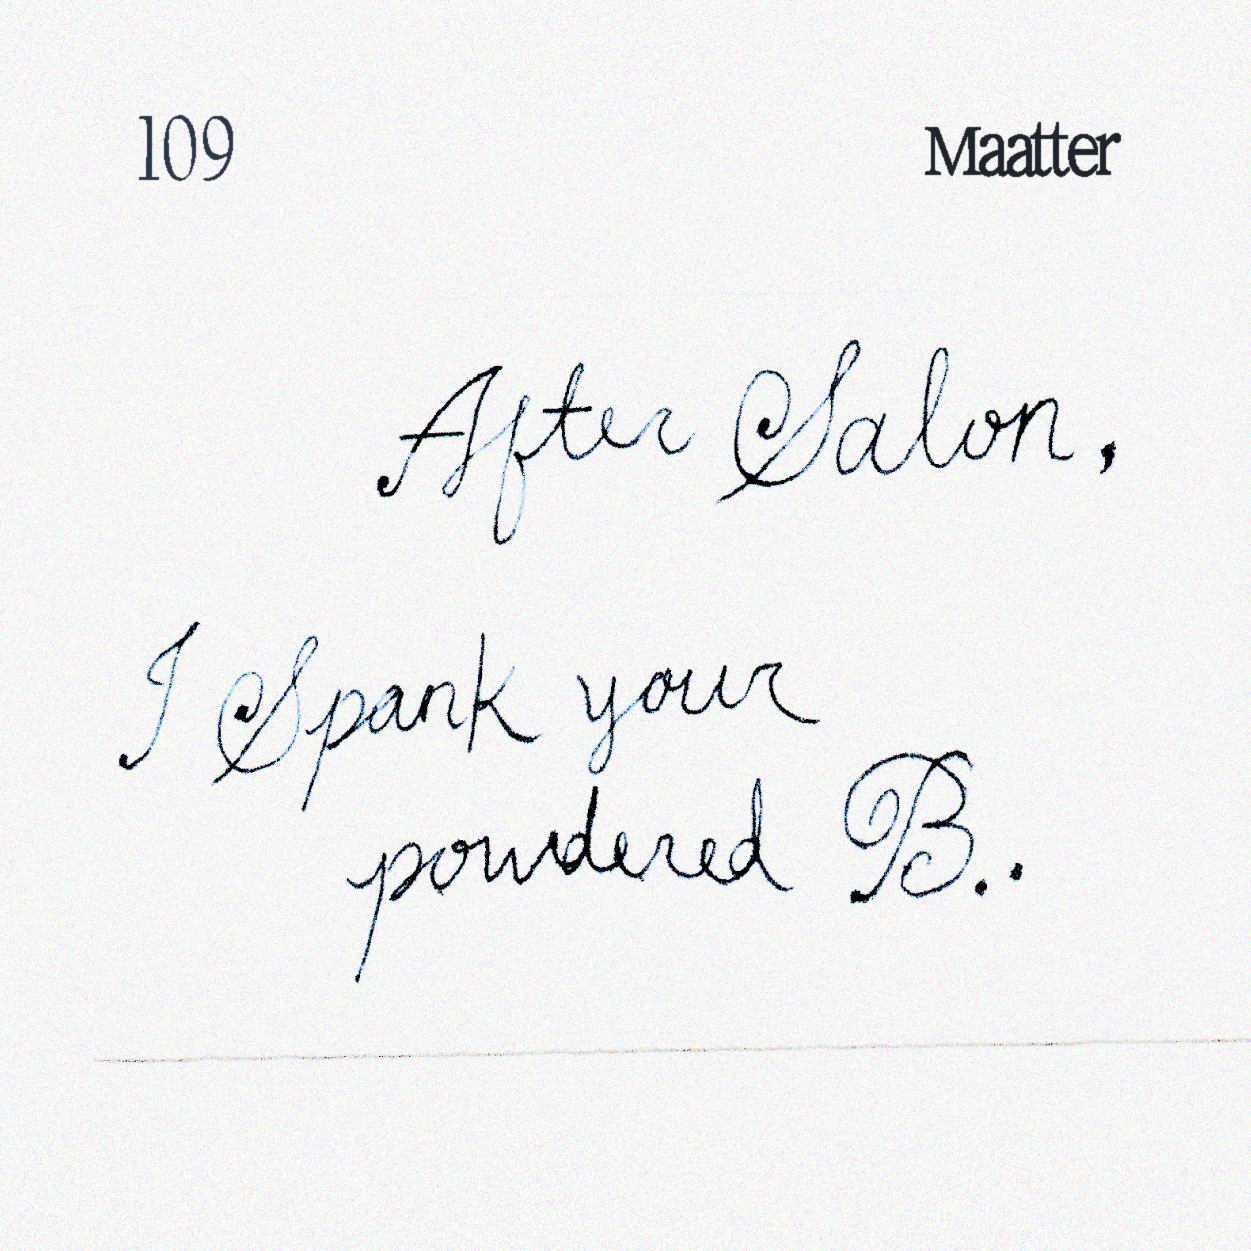 109
Maatter
After Salon,
I Spank your
powdered B..